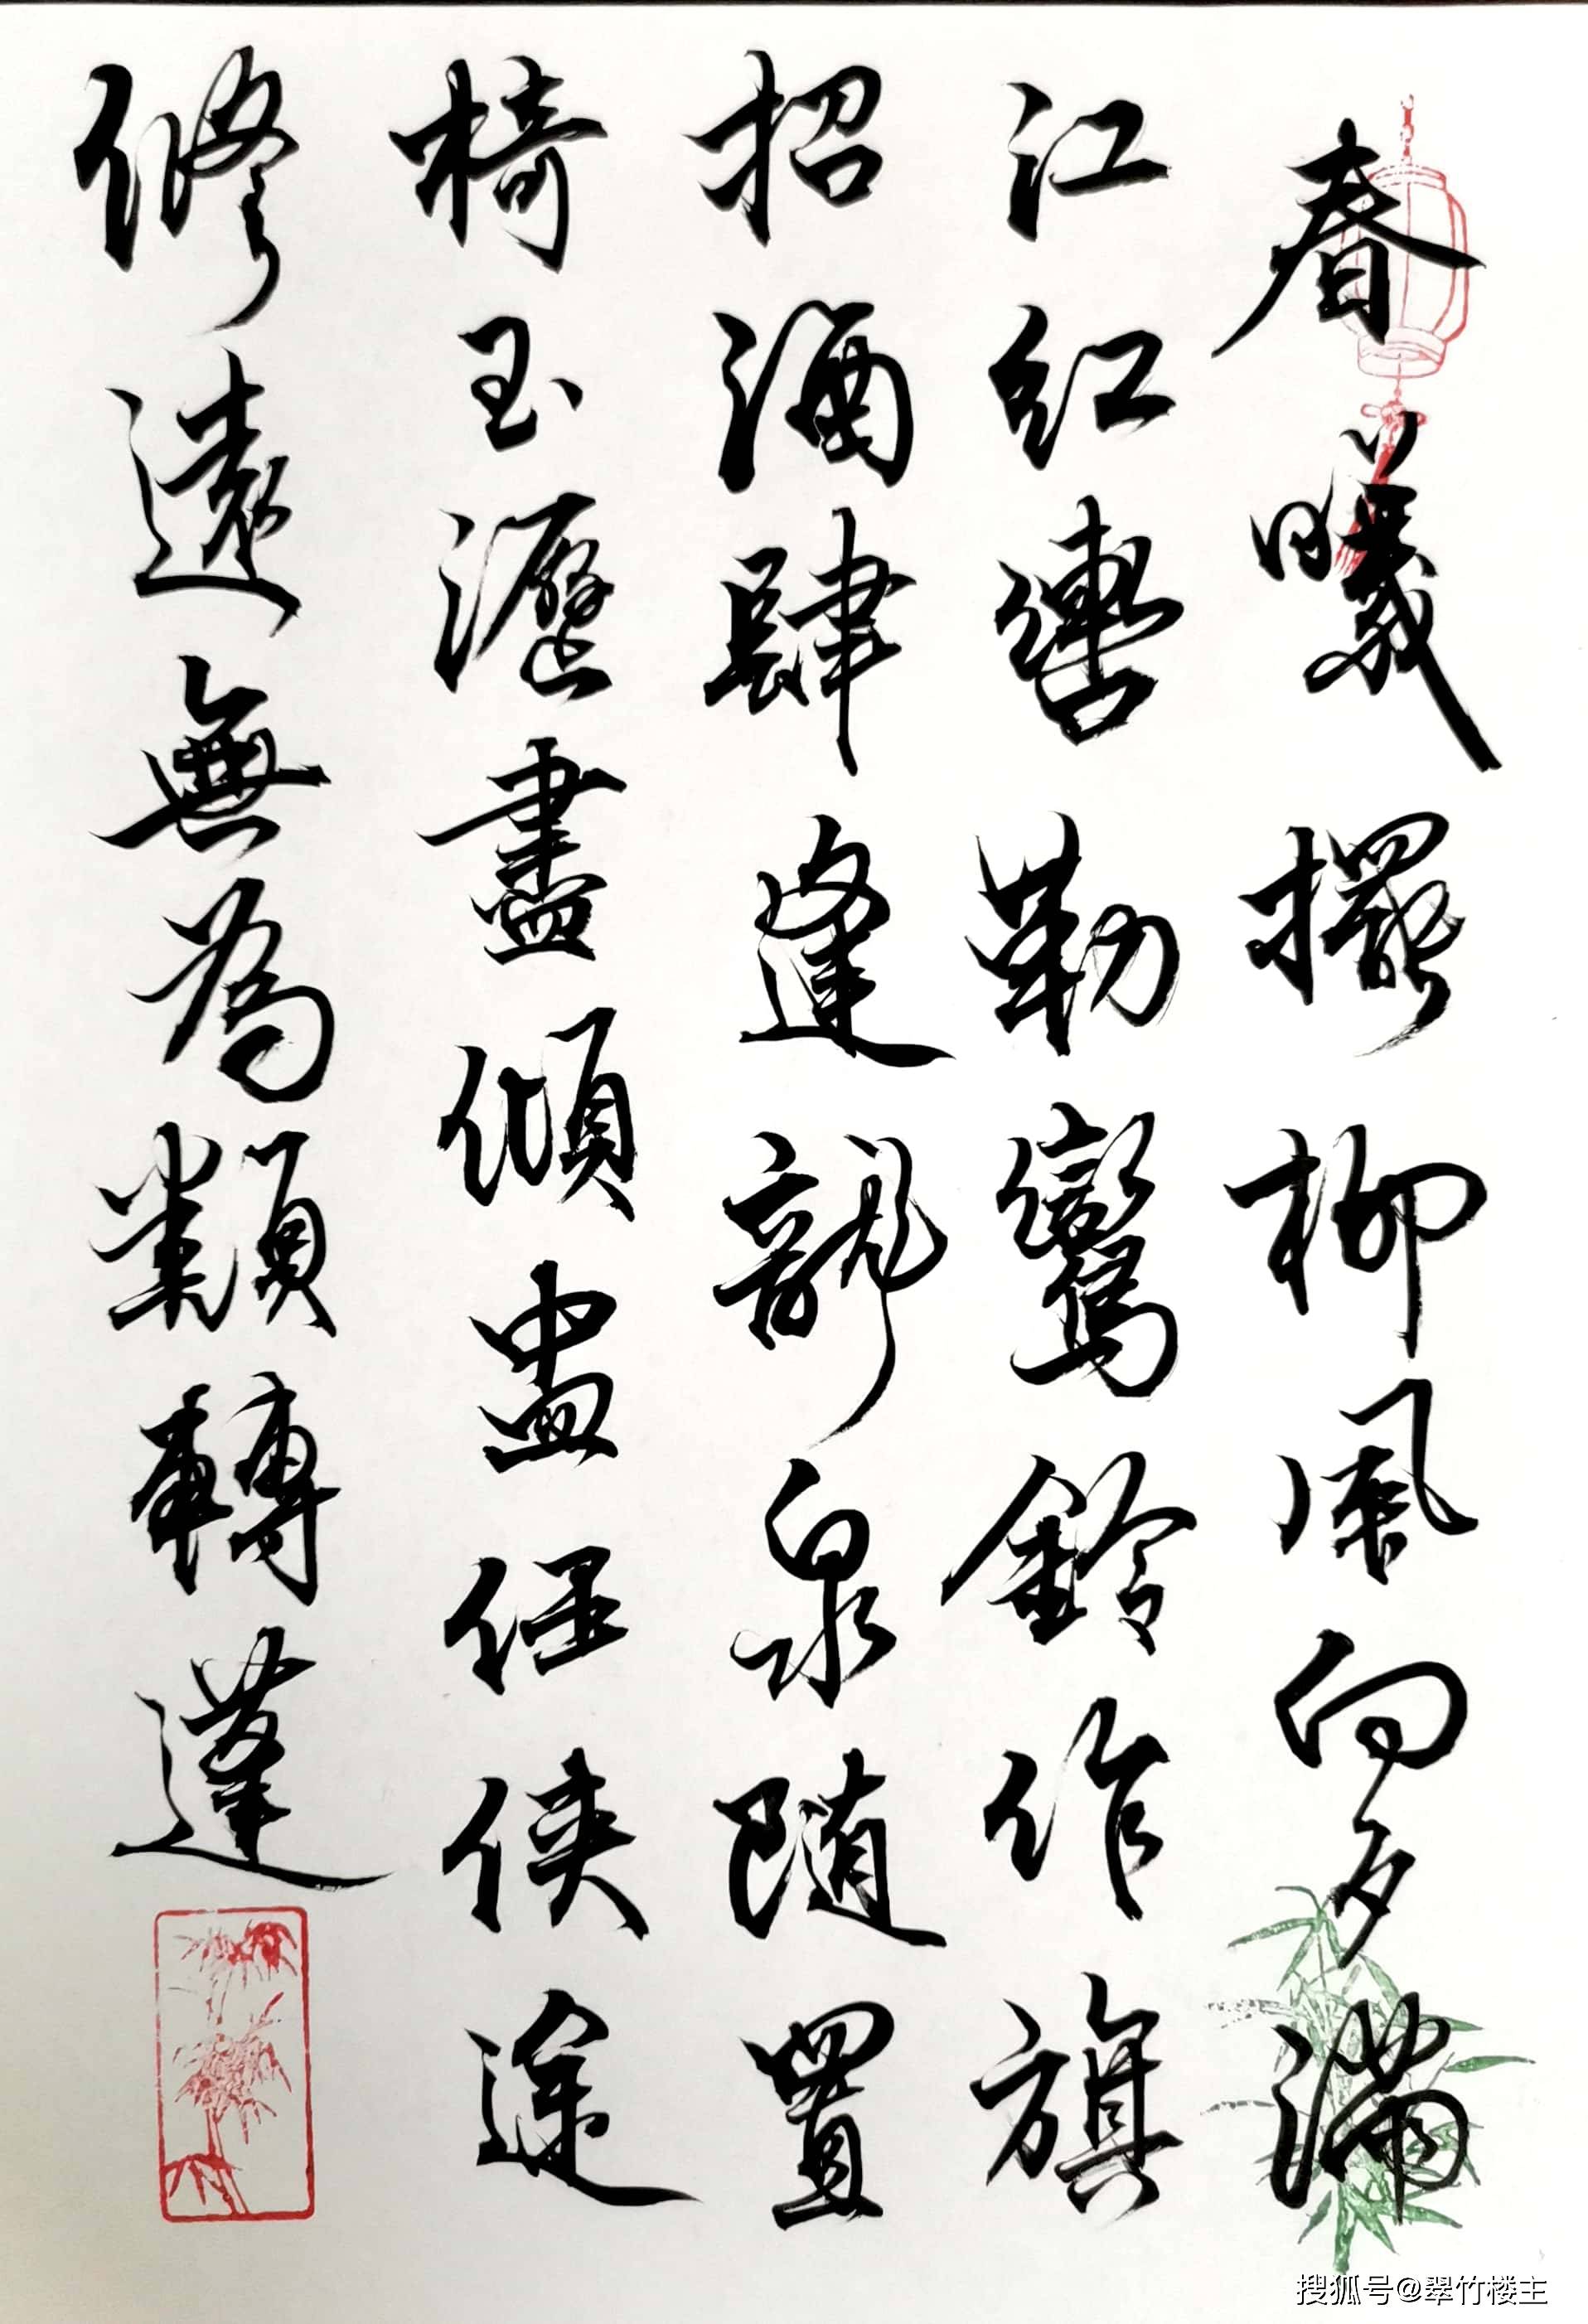 春曦擺柳風向夕滿
江紅轡勒鸞鈴作旗
招酒肆逢龍泉隨置
椅玉瀝盡傾盅任俠途
修遠無為類轉蓬
搜狐号@翠竹楼主